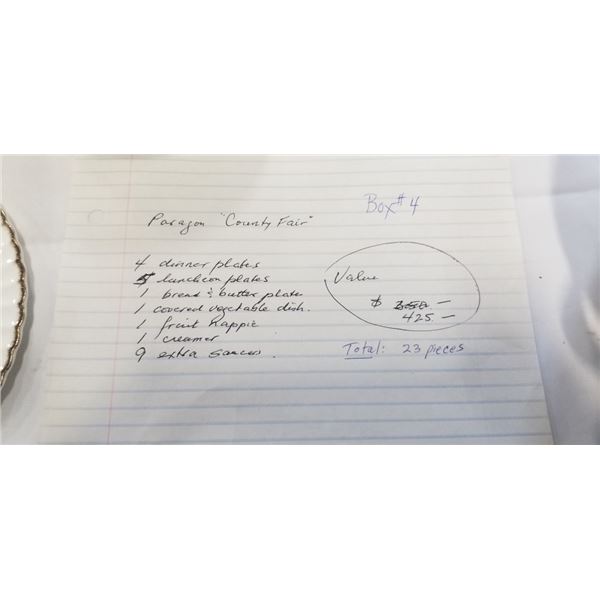 Box # 4
Paragon "County Fair"
4 dinner plates
5 luncheon plates
1 bread & butter plate
1 covered vegetable dish.
1 fruit nappie
1 creamer
9 extra saucers.
Value
$ 350 —
425. —
Total: 23 pieces